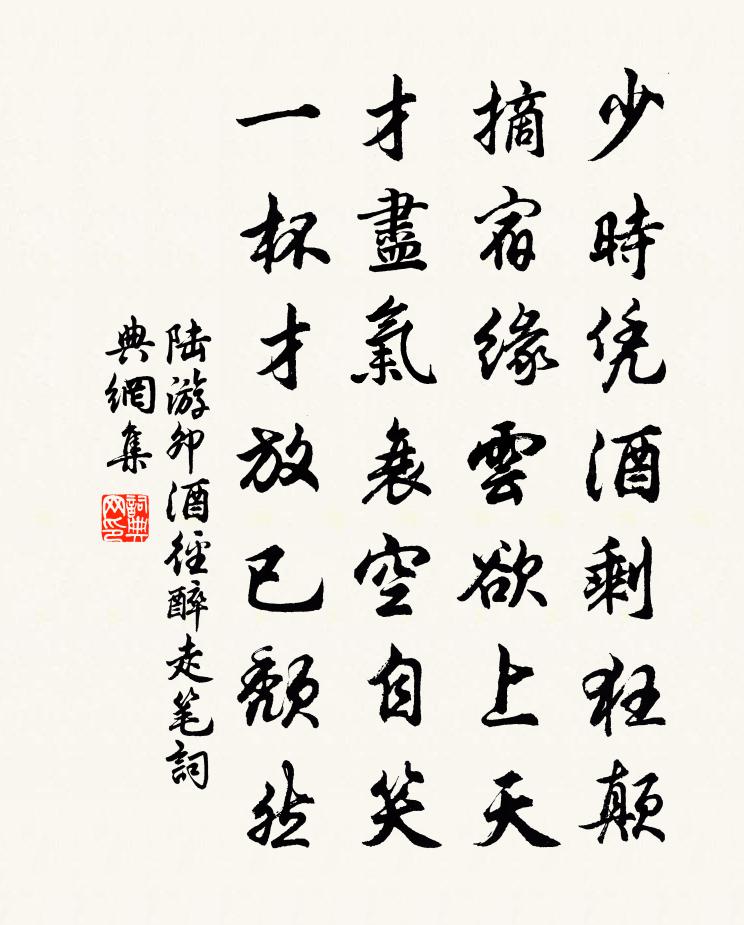 少時凭酒剩狂顛
摘宿緣雲欲上天
才盡氣衰空自笑
一杯才放已頽然
陆游卯酒徑醉走笔詞
典網集
詞典网印